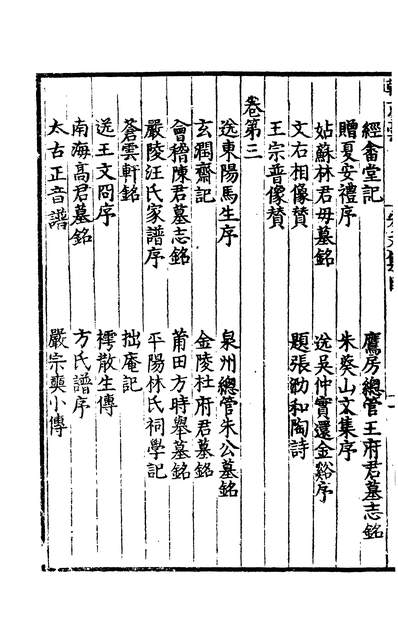 經畬堂記　鷹房總管王府君墓志銘
贈夏安禮序　朱葵山文集序
姑蘇林君母墓銘　送吳仲實還金谿序
文右相像賛　題張勔和陶詩
王宗普像賛
卷第三
送東陽馬生序　泉州總管朱公墓銘
玄潤齋記　金陵杜府君墓銘
會稽陳君墓志銘　莆田方時舉墓銘
嚴陵汪氏家譜序　平陽林氏祠學記
蒼雲軒銘　拙庵記
送王文冏序　樗散生傳
南海高君墓銘　方氏譜序
太古正音譜　嚴宗奭小傳